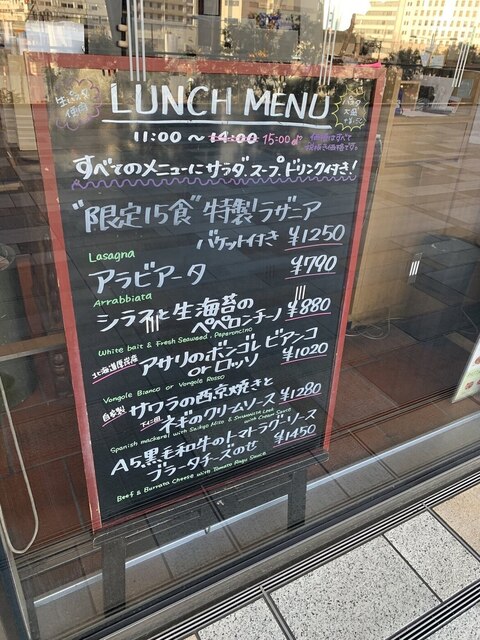 生パスタ使用
LUNCH MENU
11:00 ～ 14:00 15:00まで
価格はすべて
税抜き価格です。
すべてのメニューにサラダ、スープ、ドリンク付き!
"限定15食" 特製ラザニア
バケット付き ¥1250
Lasagna
アラビアータ ¥790
Arrabbiata
シラスと生海苔の
ペペロンチーノ ¥880
White bait & Fresh Seaweed, Peperoncino
北海道厚岸産 アサリのボンゴレ ビアンコ
or ロッソ ¥1020
Vongole Bianco or Vongole Rosso
自家製 サワラの西京焼きと
下仁田 ネギのクリームソース ¥1280
Spanish mackerel with Saikyo Miso & Shimonita Leek
with Cream Sauce
A5黒毛和牛のトマトラグーソース
ブラータチーズのせ ¥1450
Beef & Burrata Cheese with Tomato Ragu Sauce